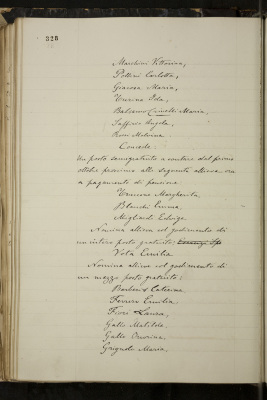 328
Marchini Vittorina,
Polleri Carlotta,
Giacosa Maria,
Ida,
Balsamo Crivelli Maria,
Angela,
Rossi Malvina
Concede:
Un posto semigratuito a contare dal primo
ottobre prossimo alle seguenti allieve, ora
a pagamento di pensione
Margherita
Bianchi Emma
Migliardi Edvige
Nomina allieva col godimento di
un intero posto gratuito:
Vota Emilia
Nomina allieve col godimento di
un mezzo posto gratuito:
Barberis Caterina
Ferrero Emilia
Fiori Laura,
Gallo Matilde,
Gallo Onorina,
Grignolo Maria,